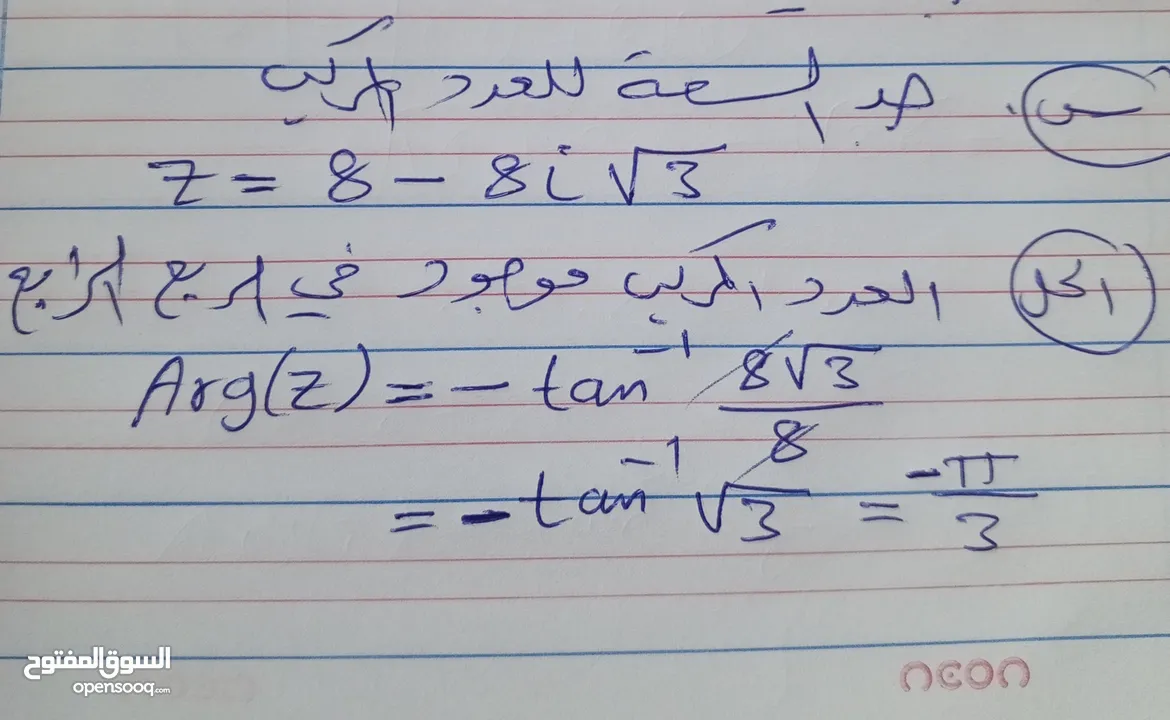 س. جد السعة للعدد المركب
z = 8 - 8i√3
الحل العدد المركب موجود في الربع الرابع
Arg(z) = - tan⁻¹ 8√3/8
= - tan⁻¹ √3 = -π/3
السوق المفتوح
opensooq.com
neon